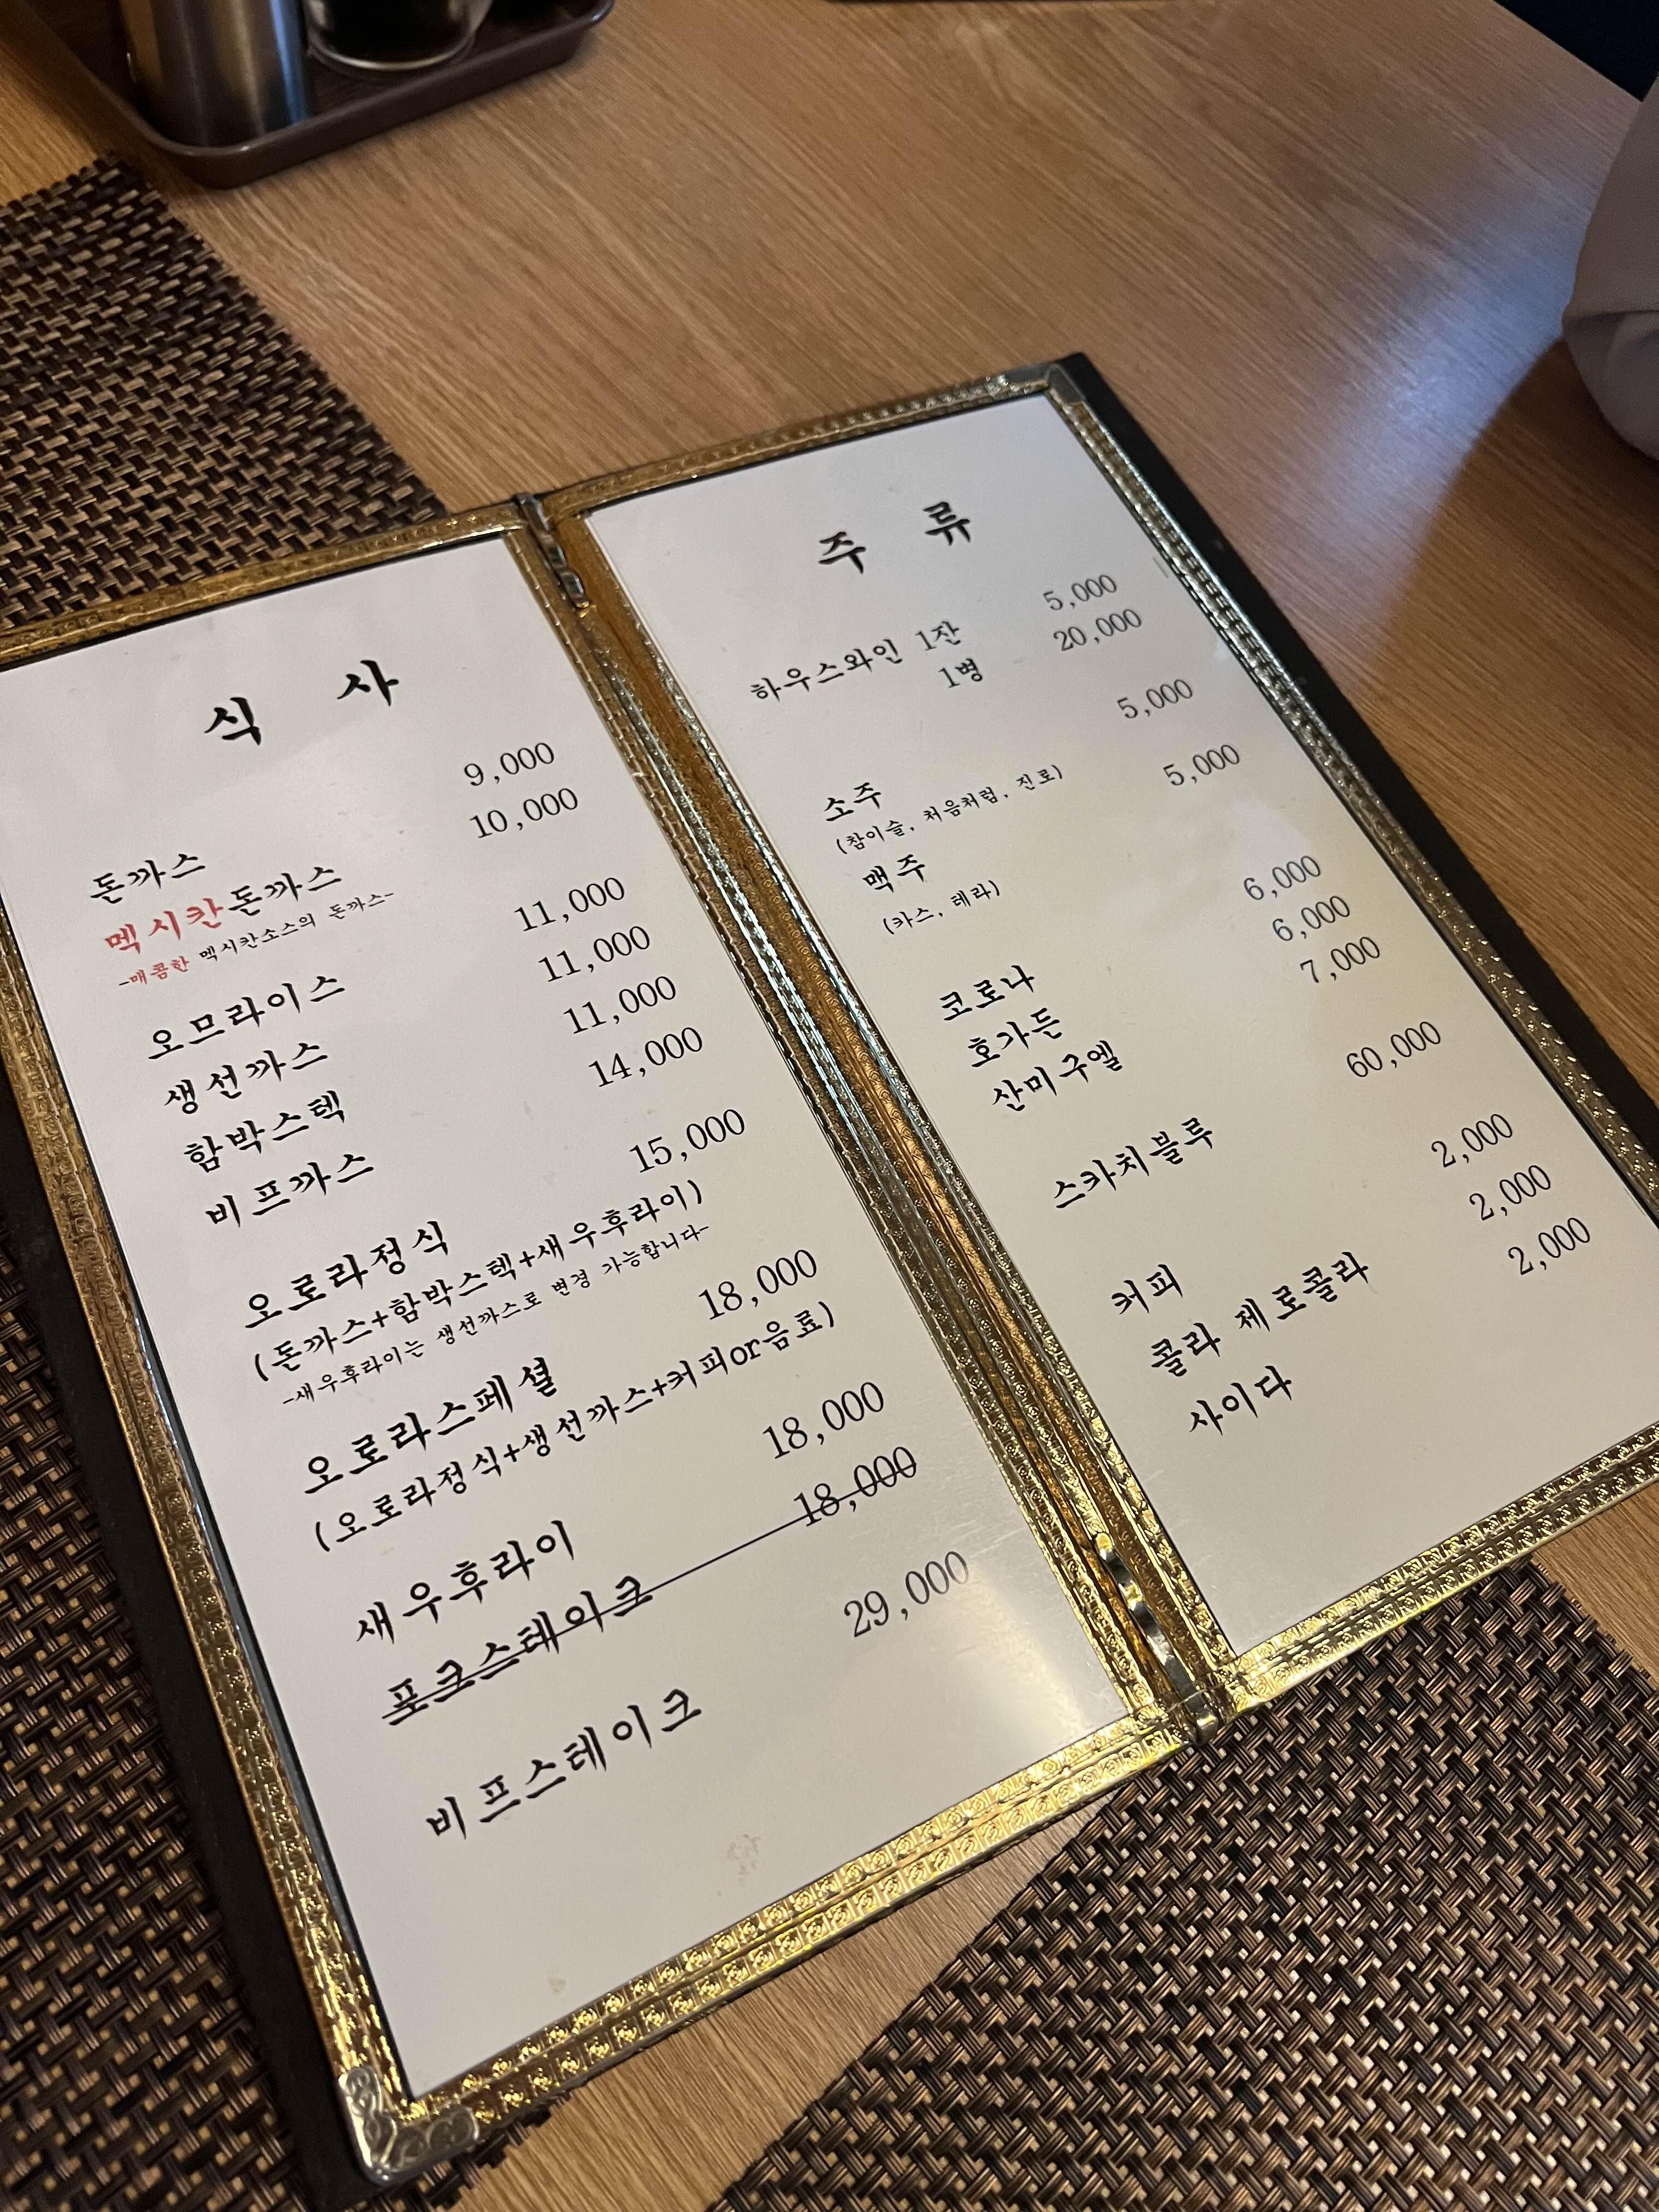 식 사
돈까스 9,000
멕시칸돈까스 10,000
-매콤한 멕시칸소스의 돈까스-
오므라이스 11,000
생선까스 11,000
함박스텍 11,000
비프까스 14,000
오로라정식 15,000
(돈까스+함박스텍+새우후라이)
-새우후라이는 생선까스로 변경 가능합니다-
오로라스페셜 18,000
(오로라정식+생선까스+커피or음료)
새우후라이 18,000
포크스테이크 18,000
비프스테이크 29,000
주 류
하우스와인 1잔 5,000
1병 20,000
소주 5,000
(참이슬, 처음처럼, 진로)
맥주 5,000
(카스, 테라)
코로나 6,000
호가든 6,000
산미구엘 7,000
스카치블루 60,000
커피 2,000
콜라 제로콜라 2,000
사이다 2,000